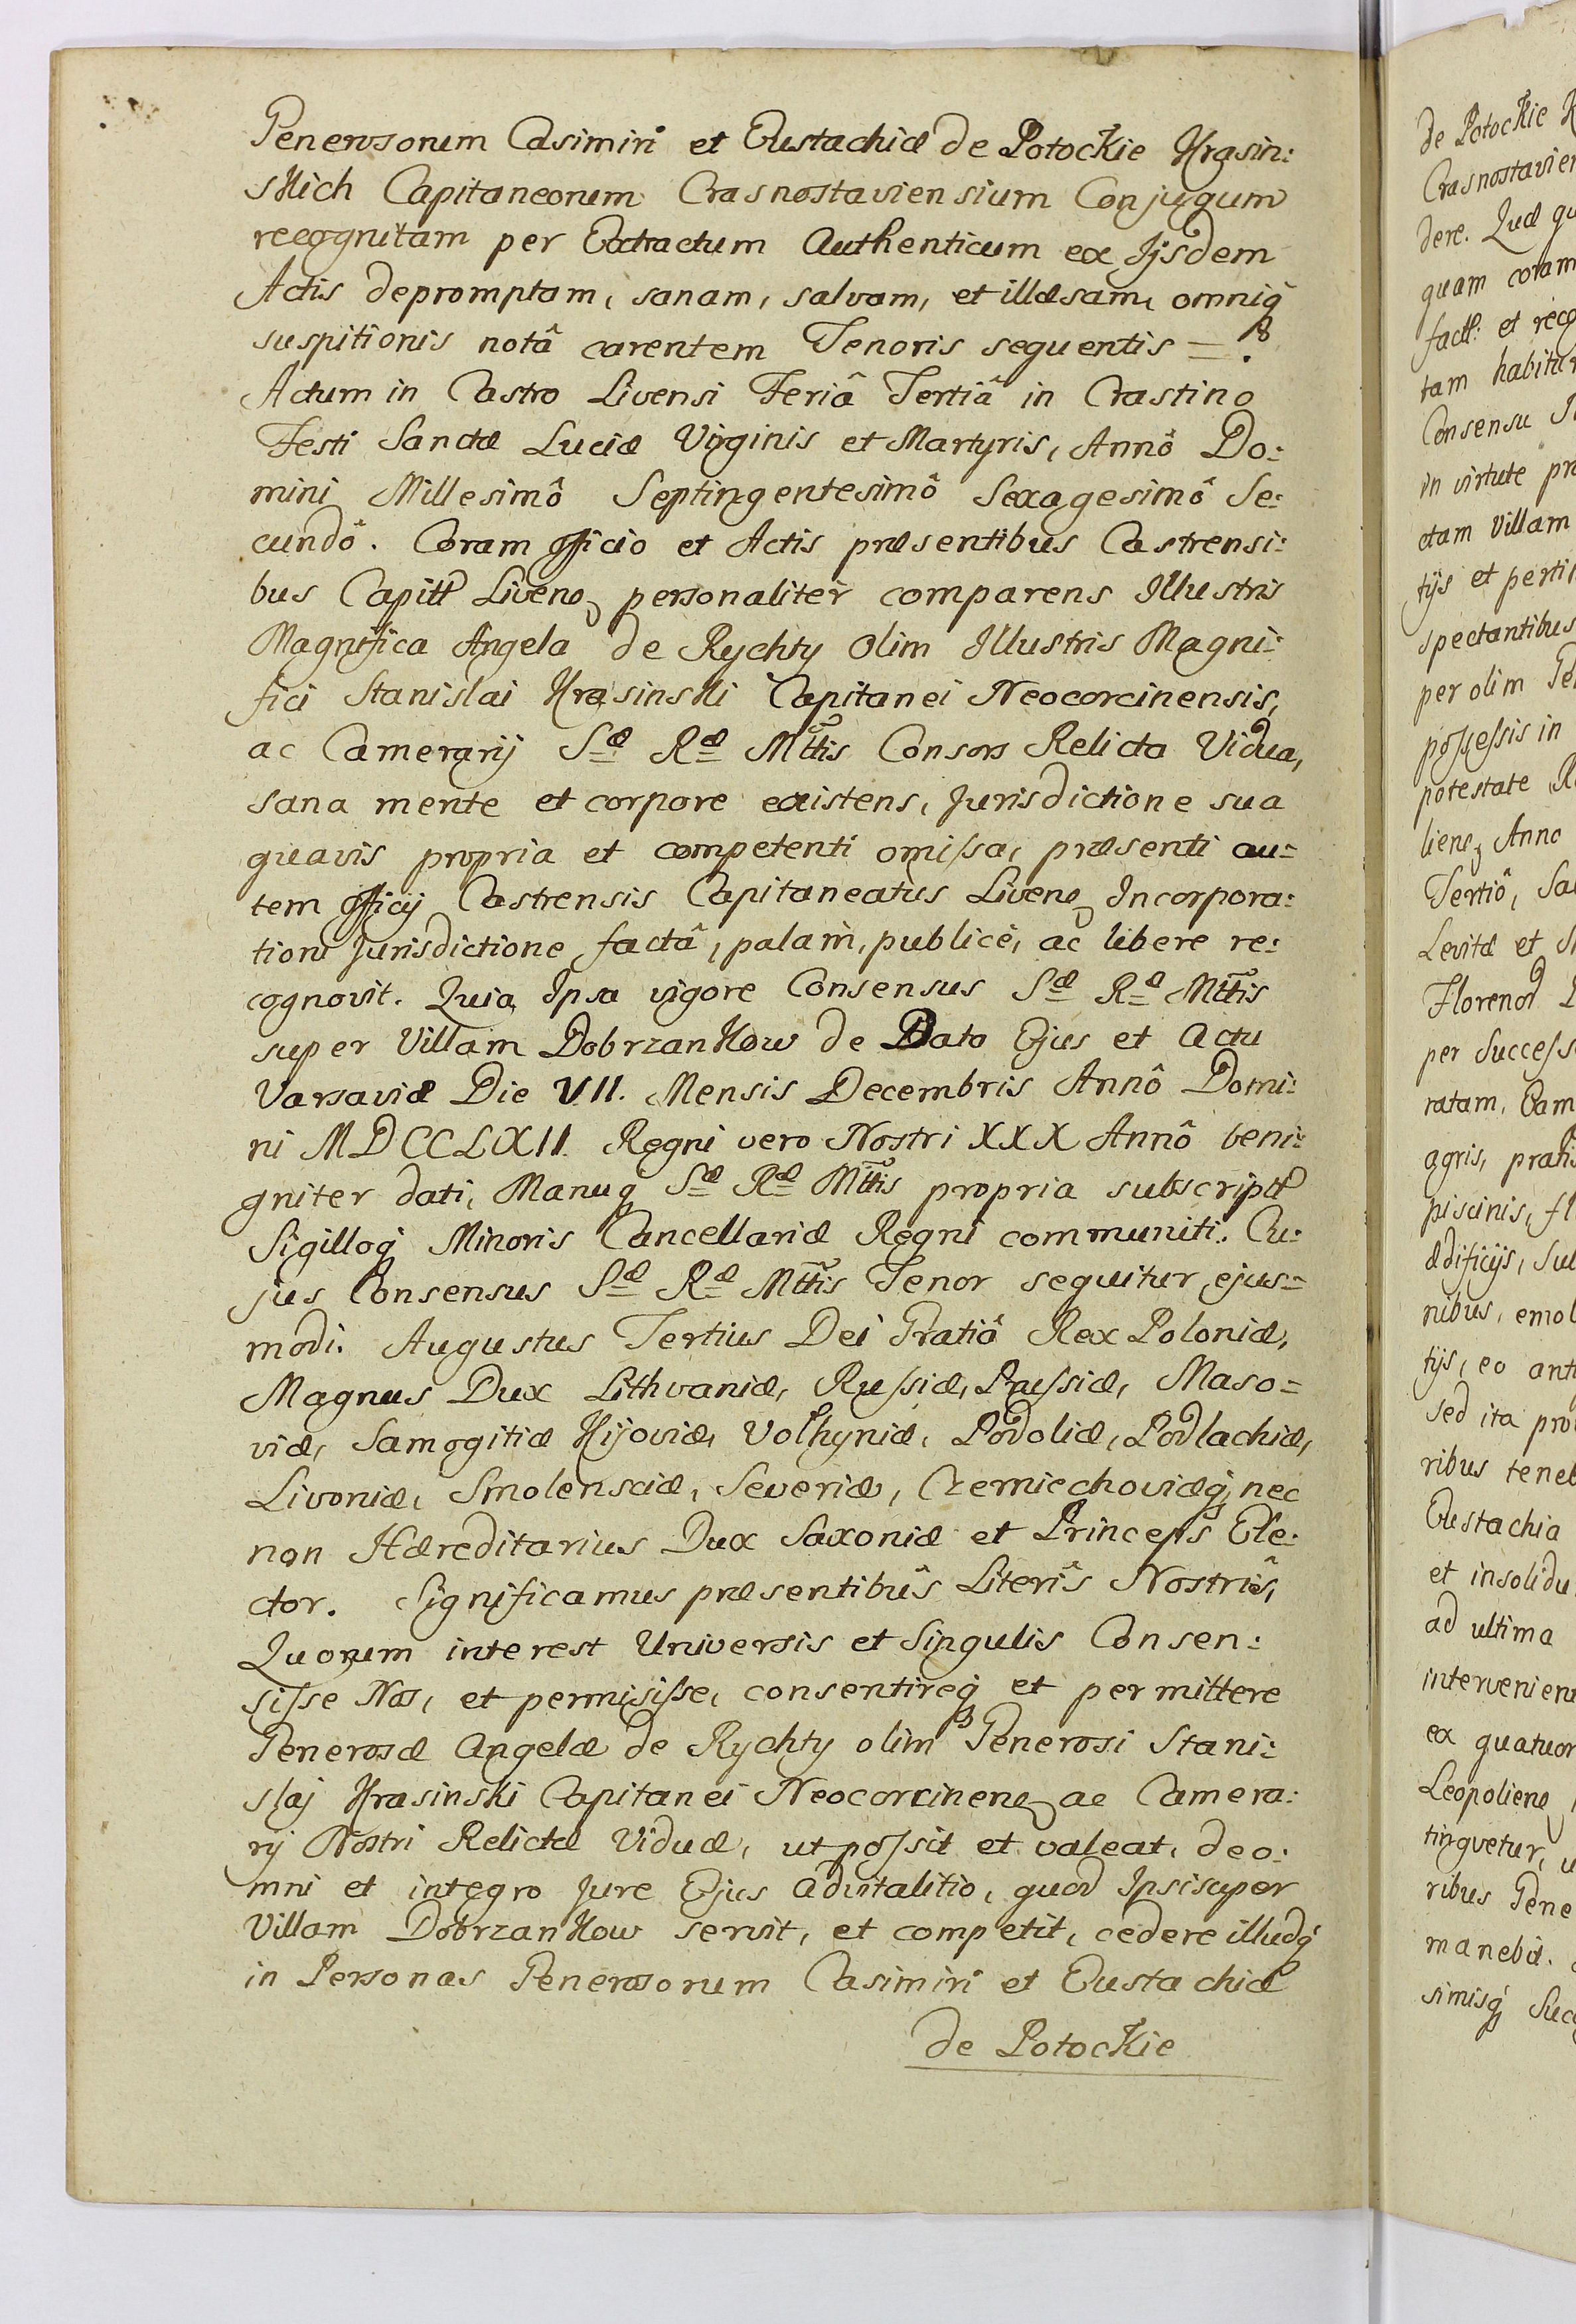 Generosorum Casimiri et Eustachiæ de Potockie Krasin:
skich Capitaneorum Crasnostaviensium Conjugum
recognitam per Extractum Authenticum ex Ijsdem
Actis depromptam, sanam, salvam, et illæsam, omniq́
suspitionis notâ carentem Tenoris sequentis =
Actum in Castro Livensi Feriâ Tertiâ in Crastino
Festi Sanctæ Luciæ Virginis et Martyris, Annô Do:
mini Millesimô Septingentesimô Sexagesimô Se:
cundô. Coram Officio et Actis præsentibus Castrensi:
bus Capitt Livenȩ personaliter comparens Illustris
Magnifica Angela de Rychty olim Illustris Magni:
fici Stanislai Krasinski Capitanei Neocorcinensis,
ac Camerarij Sæ Ræ Mttis Consors Relicta Vidua,
sana mente et corpore existens, Jurisdictione sua
quavis propria et competenti omissa, præsenti au=
tem Officij Castrensis Capitaneatus Livenȩ Incorpora:
tioni Jurisdictione factâ, palam, publicè, ac libere re:
cognovit. Quia Ipsa vigore Consensus Sæ Ræ Mttis
super Villam Dobrzankow de Dato Ejus et Actu
Varsaviæ Die VII. Mensis Decembris Annô Domi:
ni MDCCLXII. Regni vero Nostri XXX Annô beni:
gniter dati, Manuq́ Sæ Ræ Mttis propria subscriptt
Sigilloq́ Minoris Cancellariæ Regni communiti. Cu:
jus Consensus Sæ Ræ Mttis Tenor sequitur ejus=
modi. Augustus Tertius Dei Gratiâ Rex Poloniæ,
Magnus Dux Lithvaniæ, Russiæ, Prussiæ, Maso=
viæ, Samogitiæ Kijoviæ, Volhyniæ, Podoliæ, Podlachiæ,
Livoniæ, Smolensciæ, Severiæ, Czerniechoviæq́, nec
non Hæreditarius Dux Saxoniæ et Princeps Ele:
ctor. Significamus præsentibus Literis Nostris,
Quorum interest Universis et Singulis Consen:
sisse Nos, et permisisse, consentireq́ et permittere
Generosæ Angelæ de Rychty olim Generosi Stani:
slaj Krasinski Capitanei Neocorcinenȩ ac Camera:
rij Nostri Relictæ Viduæ, ut possit et valeat, de o:
mni et integro Jure Ejus advitalitio, quod Ipsi super
Villam Dobrzankow servit, et competit, cedere illudq́
in Personas Generosorum Casimiri et Eustachiæ
de Potockie
de Potockie K
Crasnostavien
dere. Quæ qu
quam coram
factt: et reco
tam habitur
Consensu
in virtute pr
ctam Villam
tijs et perti
spectantibus
per olim Ge
possessis in
potestate R
lienȩ Anno
Tertiô, Sa
Levitæ et
Floreno
per Success
ratam, Eam
agris, pratis
piscinis, fl
ædificijs, Su
nibus, emol
tijs, eo ant
sed ita pro
ribus teneb
Eustachia
et insolidu
ad ultima
intervenien
ex quatuor
Leopolienȩ
tinguetur, u
ribus Gene
manebit.
simisq́ Suc